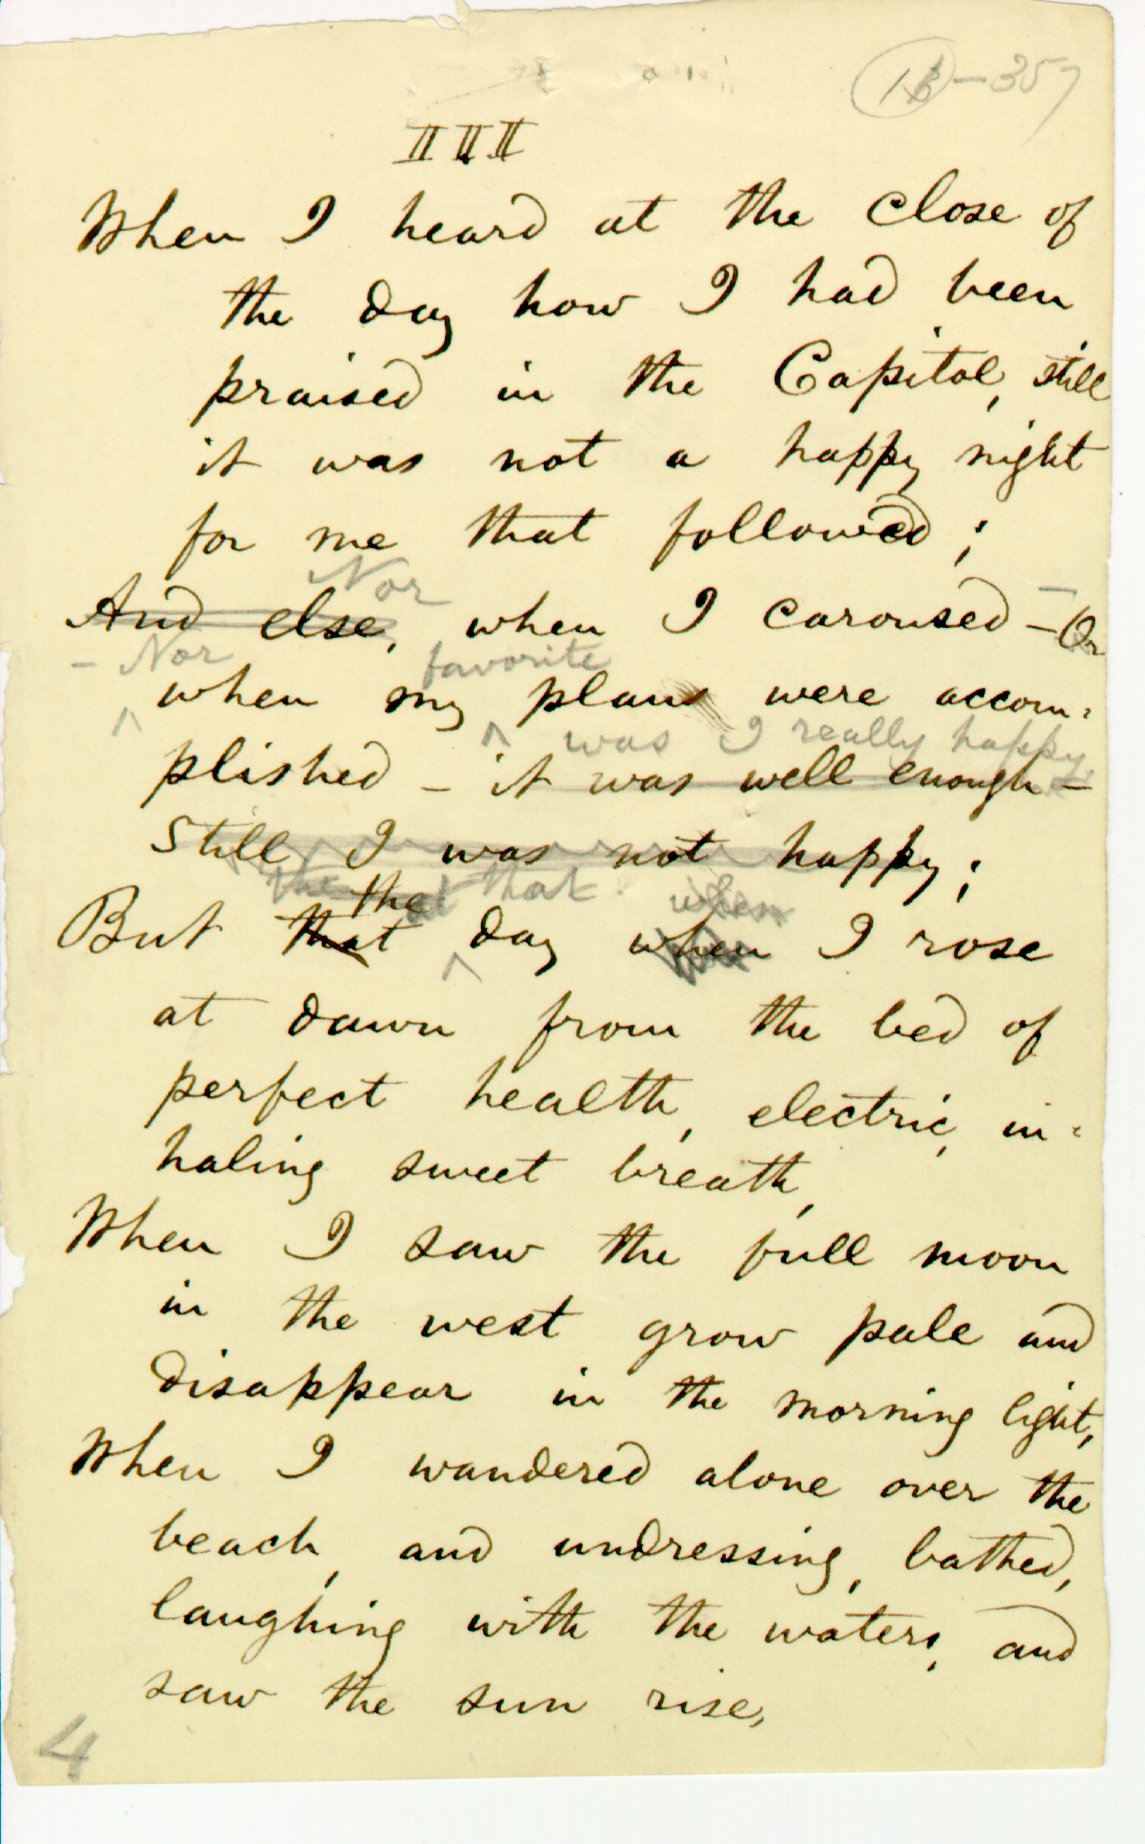 III
When I heard at the close of
the day how I had been
praised in the Capitol, still
it was not a happy night
for me that followed;
Nor
And else, when I caroused — Or
— Nor favorite
when my plans were accom-
plished — it was well enough —
was I really happy,
Still I was not happy;
the that when
the
But that day when I rose
at dawn from the bed of
perfect health, electric, in-
haling sweet breath,
When I saw the full moon
in the west grow pale and
disappear in the morning light,
When I wandered alone over the
beach, and undressing, bathed,
laughing with the waters, and
saw the sun rise,
4